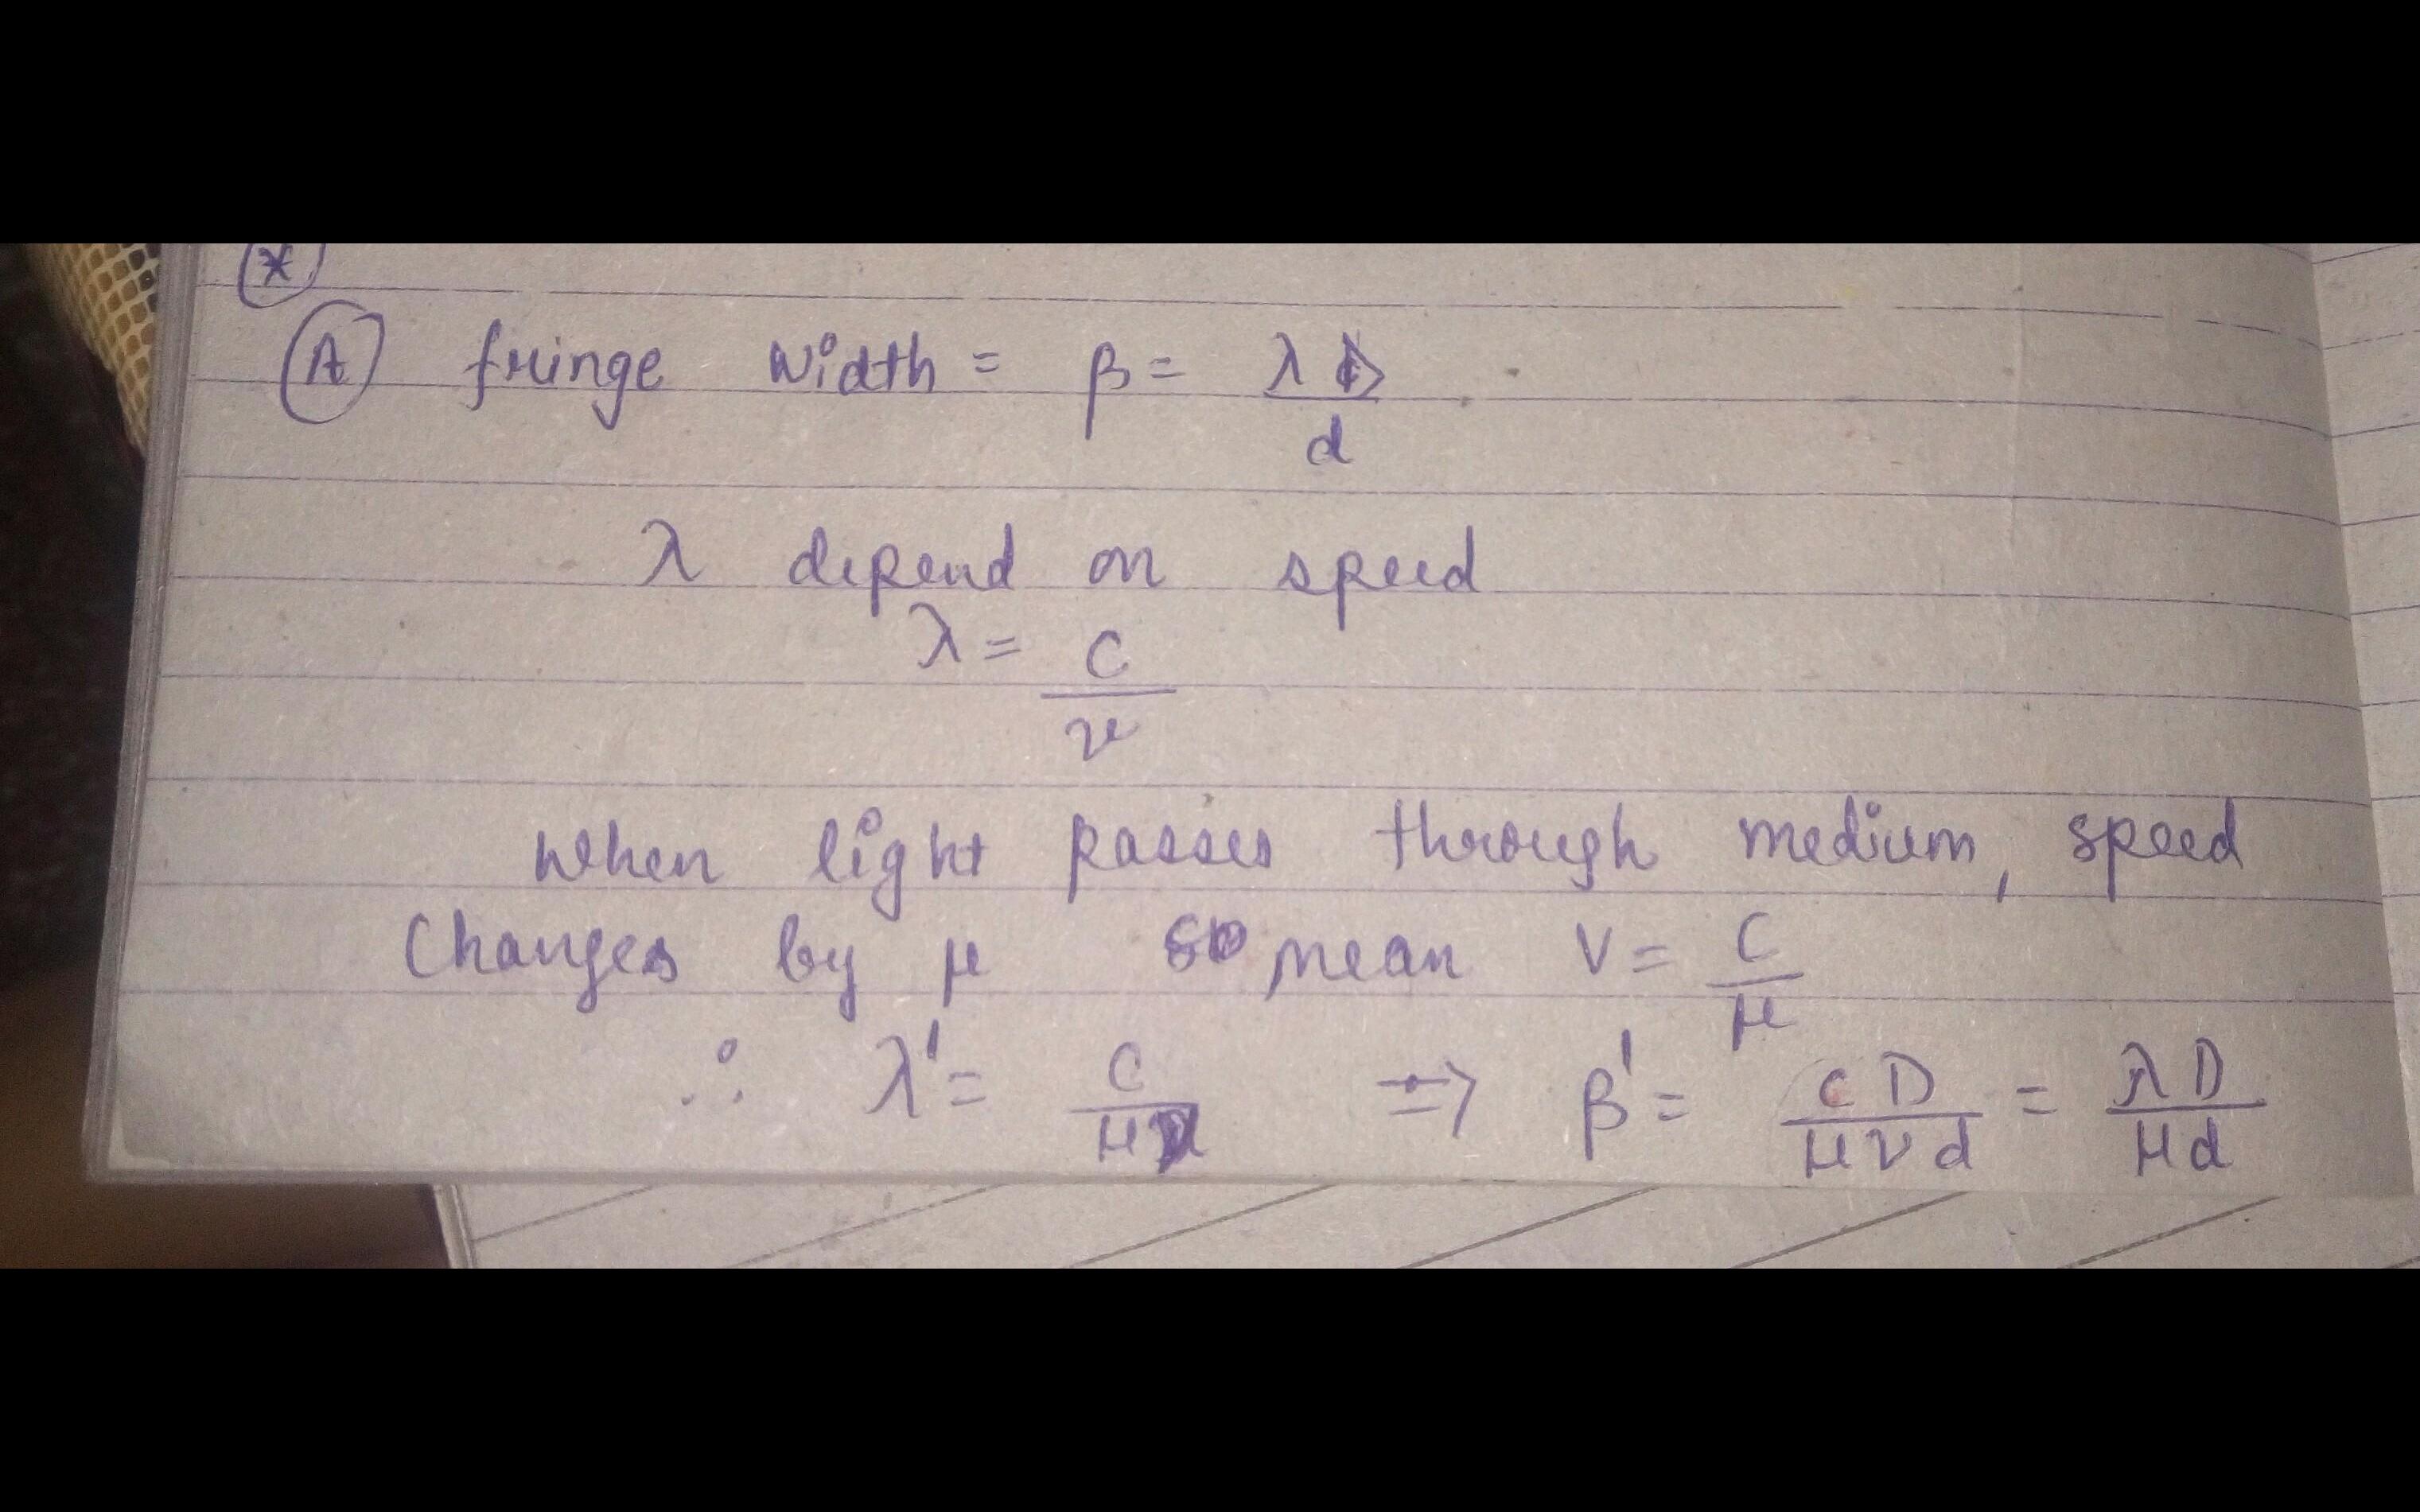 *
A fringe width = β = λD/d
λ depend on speed
λ = c/ν
When light passes through medium, speed
changes by μ so mean v = c/μ
∴ λ' = c/μν ⇒ β' = cD/μνd = λD/μd